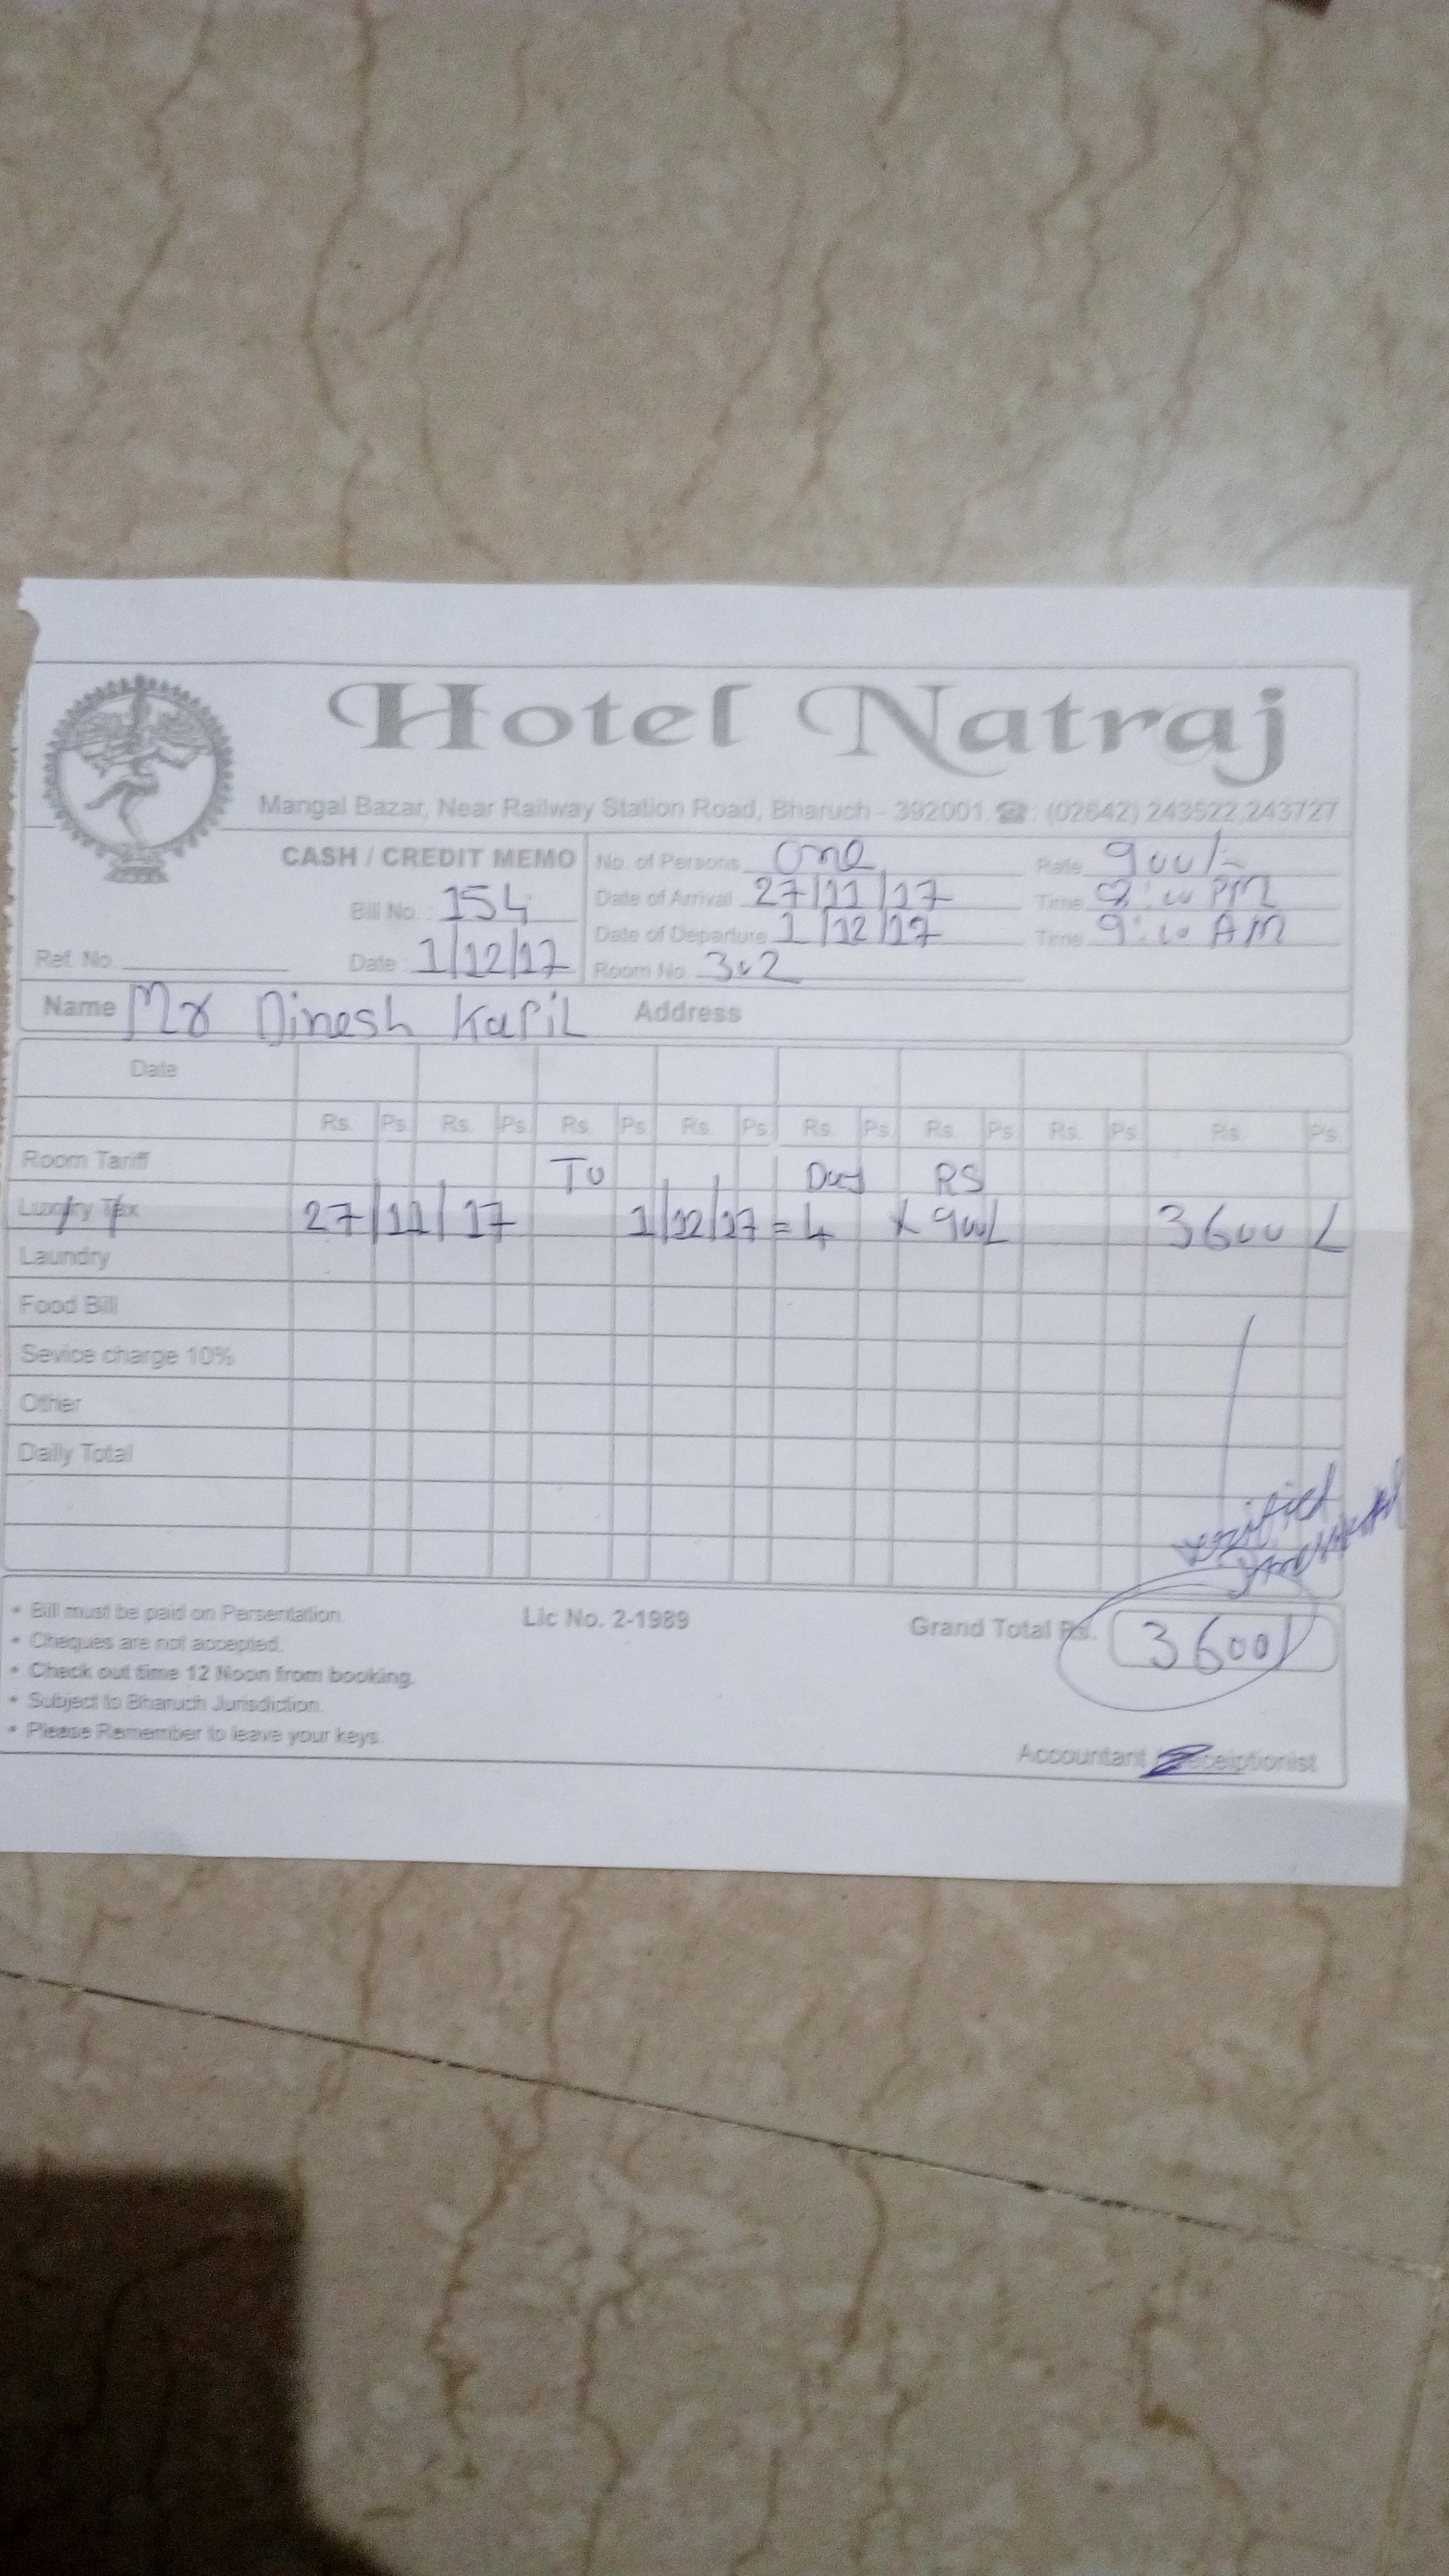 Hotel Natraj
Mangal Bazar, Near Railway Station Road, Bharuch - 392001. ☎ : (02642) 243522, 243727
CASH / CREDIT MEMO
Bill No. : 154
Ref. No.
Date : 1/12/17
No. of Persons one
Rate 900/-
Date of Arrival 27/11/17
Time 8:00 PM
Date of Departure 1/12/17
Time 9:00 AM
Room No. 302
Name Mr Dinesh Kapil Address
Date
Rs. Ps. Rs. Ps. Rs. Ps. Rs. Ps. Rs. Ps. Rs. Ps. Rs. Ps. Rs. Ps.
Room Tariff To Day RS
Luxury Tax 27/11/17 1/12/17 = 4 x 900/- 3600/-
Laundry
Food Bill
Sevice charge 10%
Other
Daily Total
verified
* Bill must be paid on Persentation.
* Cheques are not accepted.
* Check out time 12 Noon from booking.
* Subject to Bharuch Jurisdiction.
* Please Remember to leave your keys.
Lic No. 2-1989
Grand Total Rs. 3600/
Accountant / Receiptionist